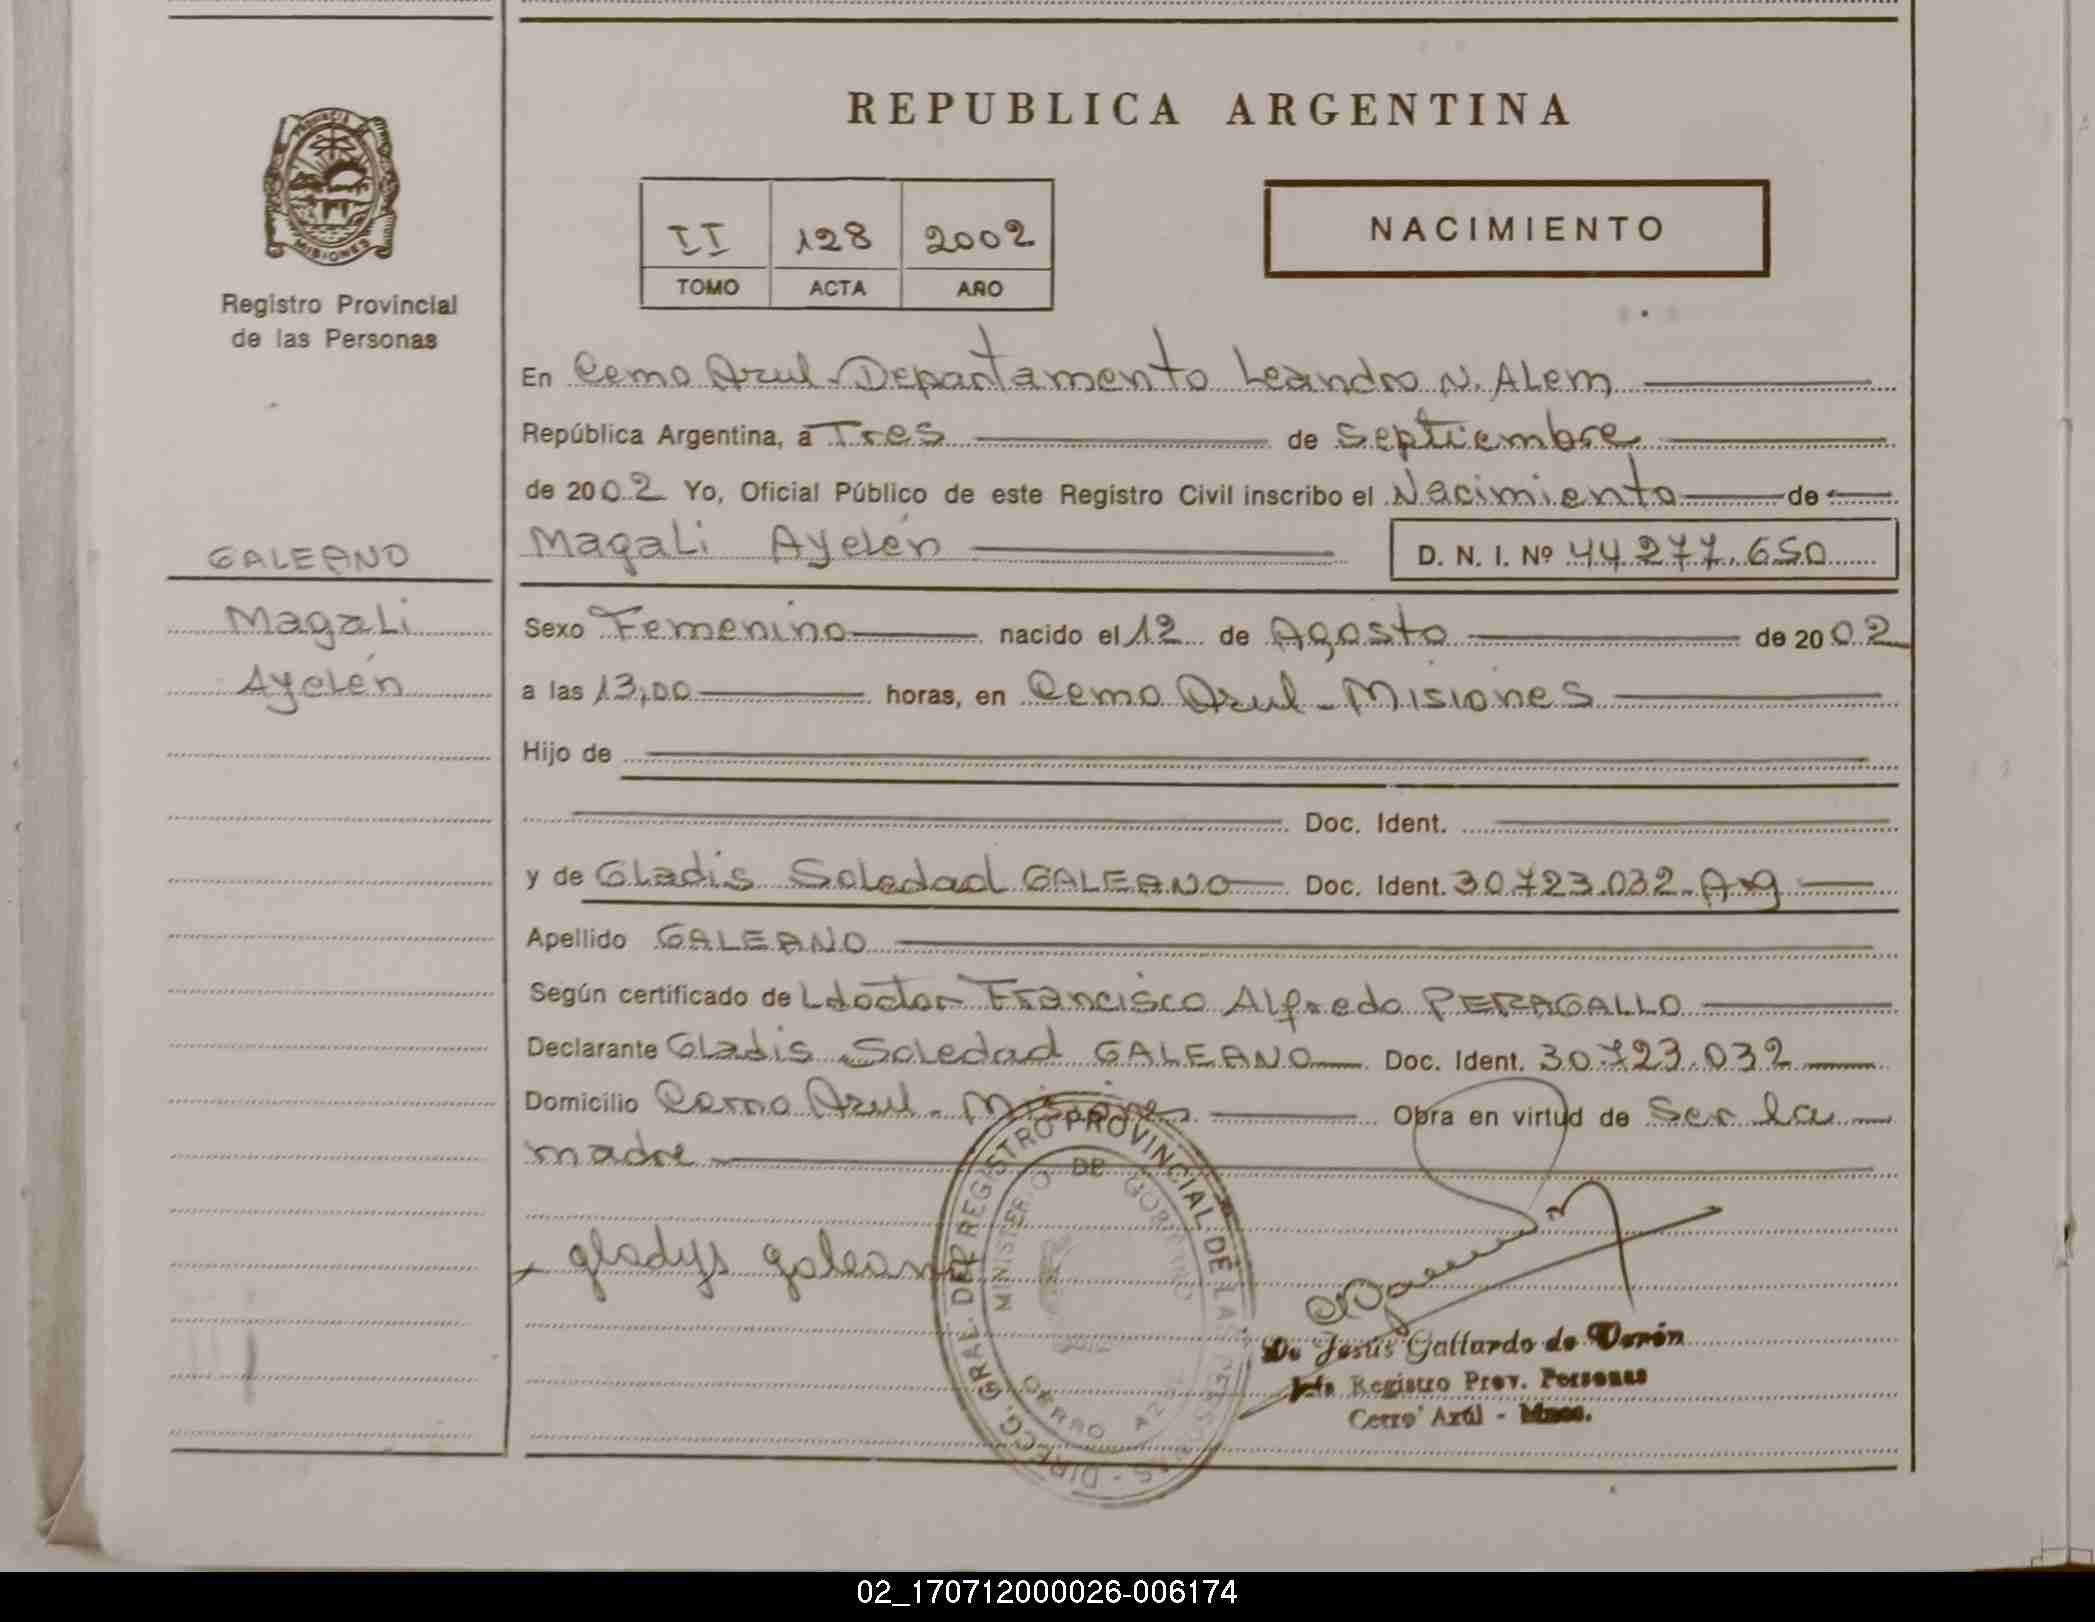 REPUBLICA ARGENTINA
PROVINCIA DE
MISIONES
Registro Provincial
de las Personas
II 128 2002
TOMO ACTA AÑO
NACIMIENTO
En Cerro Azul - Departamento Leandro N. Alem
República Argentina, a Tres de Septiembre
de 2002 Yo, Oficial Público de este Registro Civil inscribo el Nacimiento de
Magali Ayelén D. N. I. Nº 44.277.650
GALEANO
Magali
Ayelén
Sexo Femenino nacido el 12 de Agosto de 2002
a las 13,00 horas, en Cerro Azul - Misiones
Hijo de
Doc. Ident.
y de Gladis Soledad GALEANO Doc. Ident. 30.723.032 - Arg
Apellido GALEANO
Según certificado de L doctor Francisco Alfredo PERAGALLO
Declarante Gladis Soledad GALEANO Doc. Ident. 30.723.032
Domicilio Cerro Azul - Misiones Obra en virtud de Ser la
madre
gladys galeano
DIRECC. GRAL. DEL REGISTRO PROVINCIAL DE LAS PERSONAS
MINISTERIO DE GOBIERNO
CERRO AZUL
De Jesús Gallardo de Verón
Jefa Registro Prov. Personas
Cerro Azúl - Mnes.
02_170712000026-006174